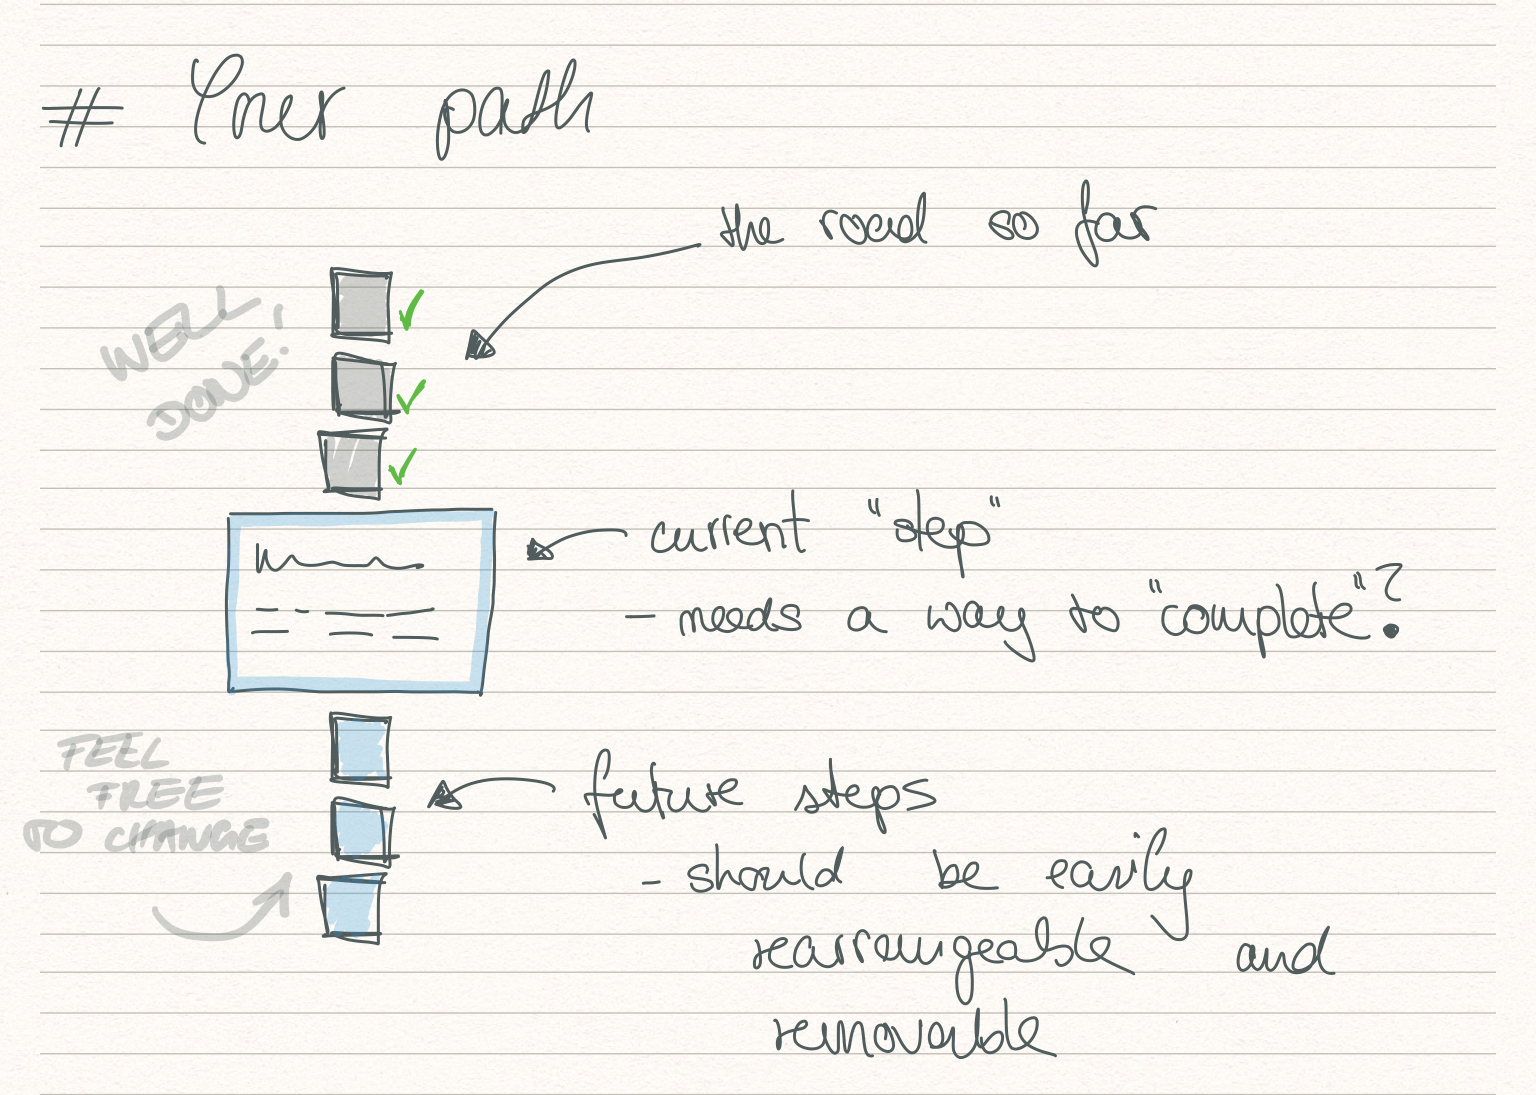 # Your path
the road so far
WELL
DONE!
current "step"
- needs a way to "complete"?
FEEL
FREE
TO CHANGE
future steps
- should be easily
rearrangeable and
removable